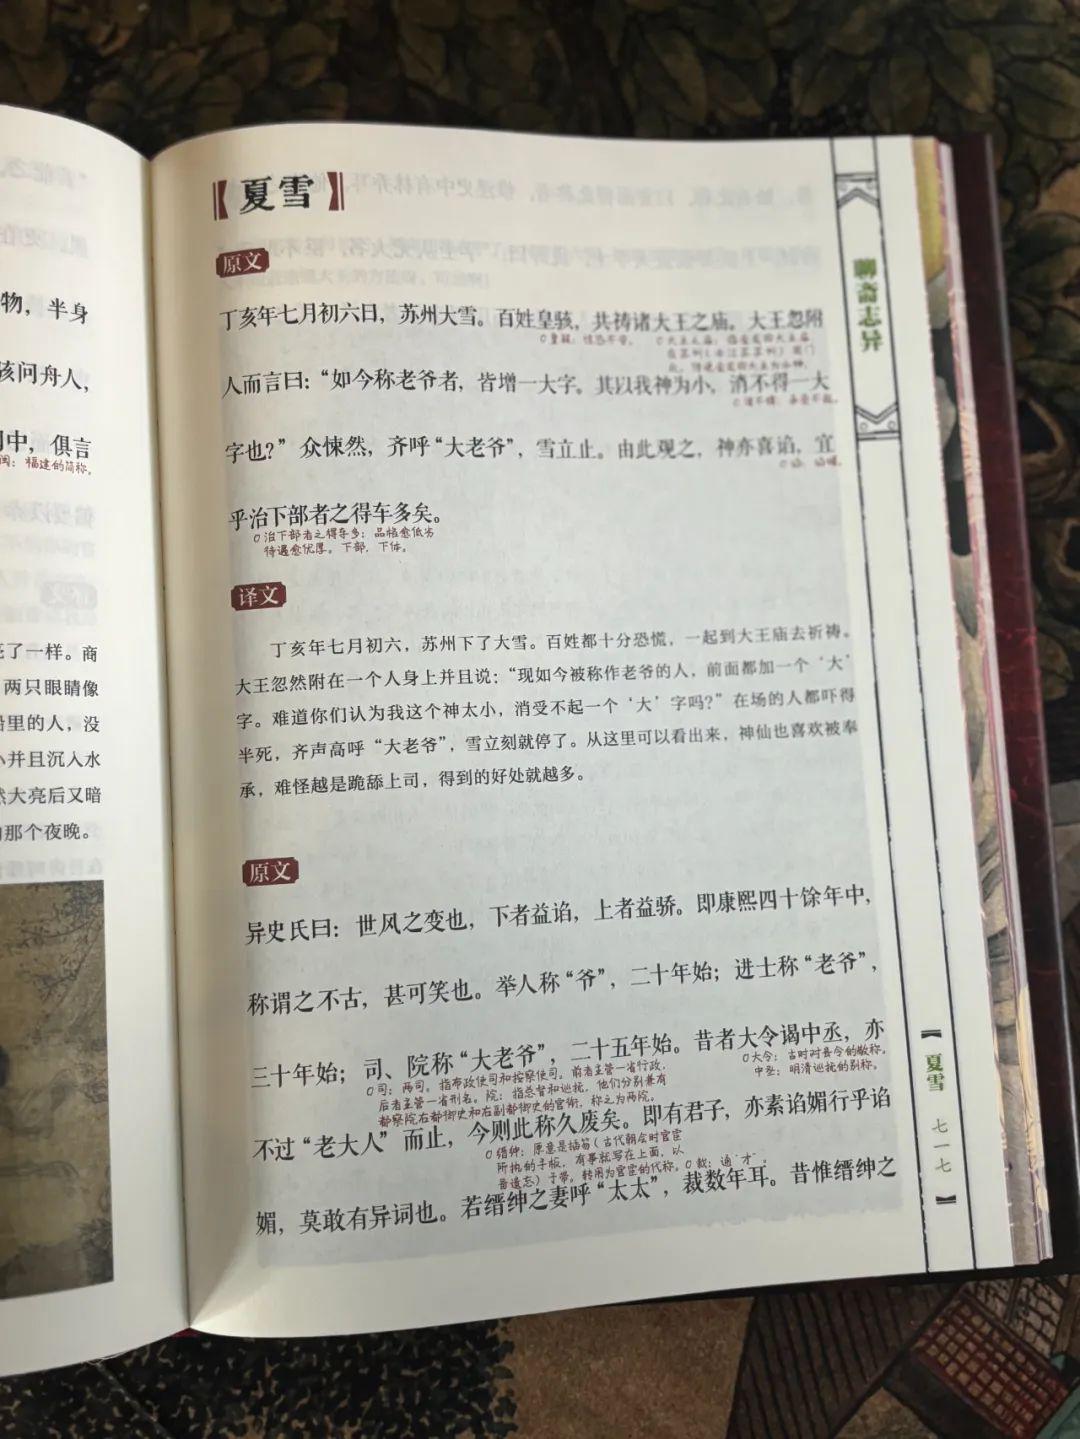 物，半身
孩问舟人，
中，俱言
闽：福建的简称。
亮了一样。商
两只眼睛像
船里的人，没
小并且沉入水
然大亮后又暗
的那个夜晚。
【夏雪】
原文
丁亥年七月初六日，苏州大雪。百姓皇骇，共祷诸大王之庙。大王忽附
皇骇：惊恐不安。
人而言曰：“如今称老爷者，皆增一大字。其以我神为小，消不得一大
字也？” 众悚然，齐呼“大老爷”，雪立止。由此观之，神亦喜谄，宜
乎治下部者之得车多矣。
治下部者之得车多：品格愈低劣
待遇愈优厚。下部，下体。
译文
丁亥年七月初六，苏州下了大雪。百姓都十分恐慌，一起到大王庙去祈祷。
大王忽然附在一个人身上并且说：“现如今被称作老爷的人，前面都加一个‘大’
字。难道你们认为我这个神太小，消受不起一个‘大’字吗？”在场的人都吓得
半死，齐声高呼“大老爷”，雪立刻就停了。从这里可以看出来，神仙也喜欢被奉
承，难怪越是跪舔上司，得到的好处就越多。
原文
异史氏曰：世风之变也，下者益谄，上者益骄。即康熙四十馀年中，
称谓之不古，甚可笑也。举人称“爷”，二十年始；进士称“老爷”，
三十年始；司、院称“大老爷”，二十五年始。昔者大令谒中丞，亦
司：两司。指布政使司和按察使司。前者主管一省行政，
后者主管一省刑名。院：指总督和巡抚，他们分别兼有
都察院右都御史和右副都御史的官衔，称之为两院。
大令：古时对县令的敬称。
中丞：明清巡抚的别称。
不过“老大人”而止，今则此称久废矣。即有君子，亦素谄媚行乎谄
缙绅：原意是插笏（古代朝会时官宦
所执的手板，有事就写在上面，以
备遗忘）于带。转用为官宦的代称。
裁：通“才”。
媚，莫敢有异词也。若缙绅之妻呼“太太”，裁数年耳。昔惟缙绅之
聊斋志异
【夏雪 七一七】